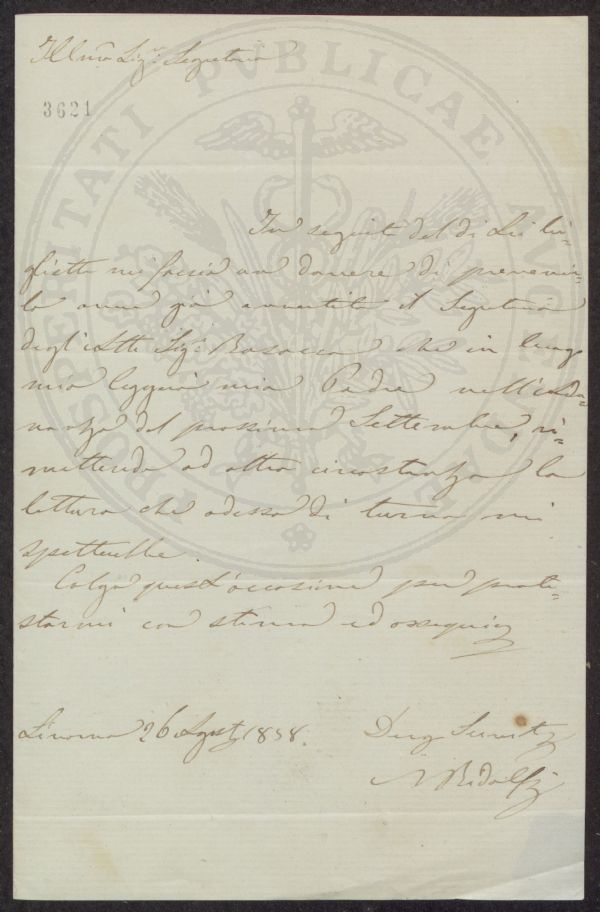 Illmo Sigr. Segretario
3621
PROSPERITATI PVBLICAE AVGENDAE
In seguito del di Lei bi=
glietto mi faccio un dovere di prevenir=
la aver già avvertito il Segretario
degli Atti Sigr. che in luogo
mio leggerà mio Padre nell'adu=
nanza del prossimo Settembre, ri=
mettendo ad altra circostanza la
lettura che adesso di turno mi
spetterebbe.
Colgo quest'occasione per prote=
starmi con stima ed ossequio
26 Agosto 1858.
Ridolfi